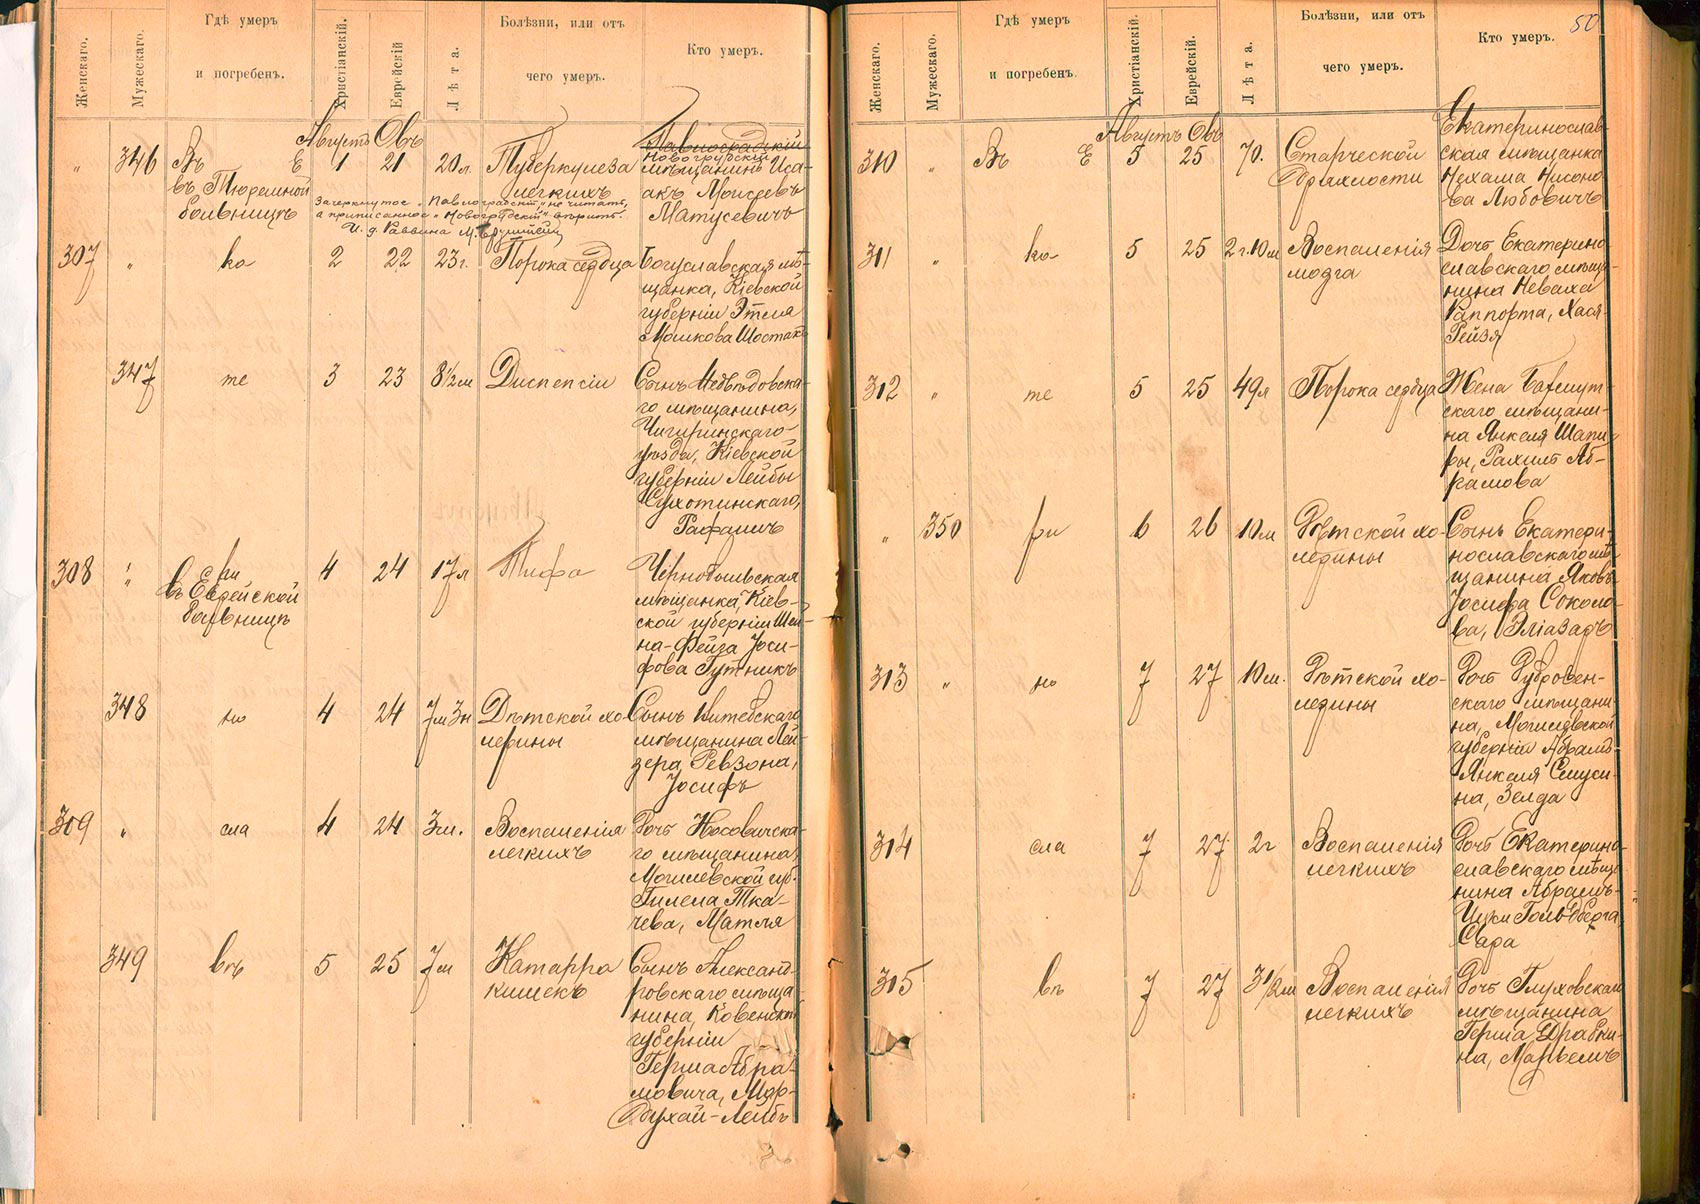 Женскаго.
Мужескаго.
Гдѣ умеръ
и погребенъ.
Христіанскій.
Еврейскій
Лѣта.
Болѣзни, или отъ
чего умеръ.
Кто умеръ.
Августъ Овъ
„ 346 Въ Е 1 21 20 л. Туберкулеза
легкихъ
въ Тюремной
больницѣ
Павлоградскій
Новогрудскій
мѣщанинъ Иса-
акъ Моисеевъ
Матусевичъ
Зачеркнутое „Павлоградскій" не читать,
а приписанное „Новогрудскій" вѣрить.
И. д. Раввина
307 „ ка 2 22 23 г. Порока сердца
Богуславская мѣ-
щанка, Кіевской
губерніи Этля
Мошкова Шостакъ
347 те 3 23 8½ м Диспепсіи
Сынъ Медвѣдовска-
го мѣщанина,
Чигиринскаго
уѣзда, Кіевской
губерніи Лейбы
Сухотинскаго,
Рафаилъ
308 „ ри 4 24 17 л Тифа
въ Еврейской
больницѣ
Чернобыльская
мѣщанка, Кіев-
ской губерніи Шей-
на-Фейга Іоси-
фова Гутникъ
348 но 4 24 7 м 3 н Дѣтской хо-
лерины
Сынъ Витебскаго
мѣщанина Лей-
зера Ревзона,
Іосифъ
309 „ сла 4 24 3 м. Воспаленія
легкихъ
Дочь Носовичска-
го мѣщанина,
Могилевской губ.
Гилела Тка-
чева, Матля
349 въ 5 25 7 м Катарра
кишекъ
Сынъ Александ-
ровскаго мѣща-
нина, Ковенской
губерніи
Герша Абра-
мовича, Мор-
духай-Лейбъ
50
Женскаго.
Мужескаго.
Гдѣ умеръ
и погребенъ.
Христіанскій.
Еврейскій.
Лѣта.
Болѣзни, или отъ
чего умеръ.
Кто умеръ.
Августъ Овъ
310 „ Въ Е 5 25 70. Старческой
дряхлости
Екатеринослав-
ская мѣщанка
Нехама Нисоно-
ва Любовичъ
311 „ ка 5 25 2 г. 10 м Воспаленія
мозга
Дочь Екатерино-
славскаго мѣща-
нина Неваха
Раппопорта, Хася-
Рейзя
312 „ те 5 25 49 л Порока сердца
Жена Бахмут-
скаго мѣщани-
на Янкеля Шапи-
ры, Рахиль Аб-
рамова
„ 350 ри 6 26 10 м Дѣтской хо-
лерины
Сынъ Екатери-
нославскаго мѣ-
щанина Яковъ
Іосифа Соколо-
ва, Эліазаръ
313 „ но 7 27 10 м. Дѣтской хо-
лерины
Дочь Дубровен-
скаго мѣщани-
на, Могилевской
губерніи Абрамъ-
Янкеля
на, Зелда
314 сла 7 27 2 г Воспаленія
легкихъ
Дочь Екатерино-
славскаго мѣща-
нина Абрамъ-
Ицки Гольдберга
Сара
315 въ 7 27 3½ м Воспаленія
легкихъ
Дочь Глуховскаго
мѣщанина
Герша Драбки-
на,